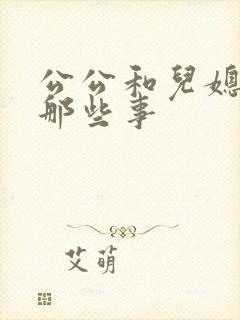 公公和兒媳
那些事
艾萌